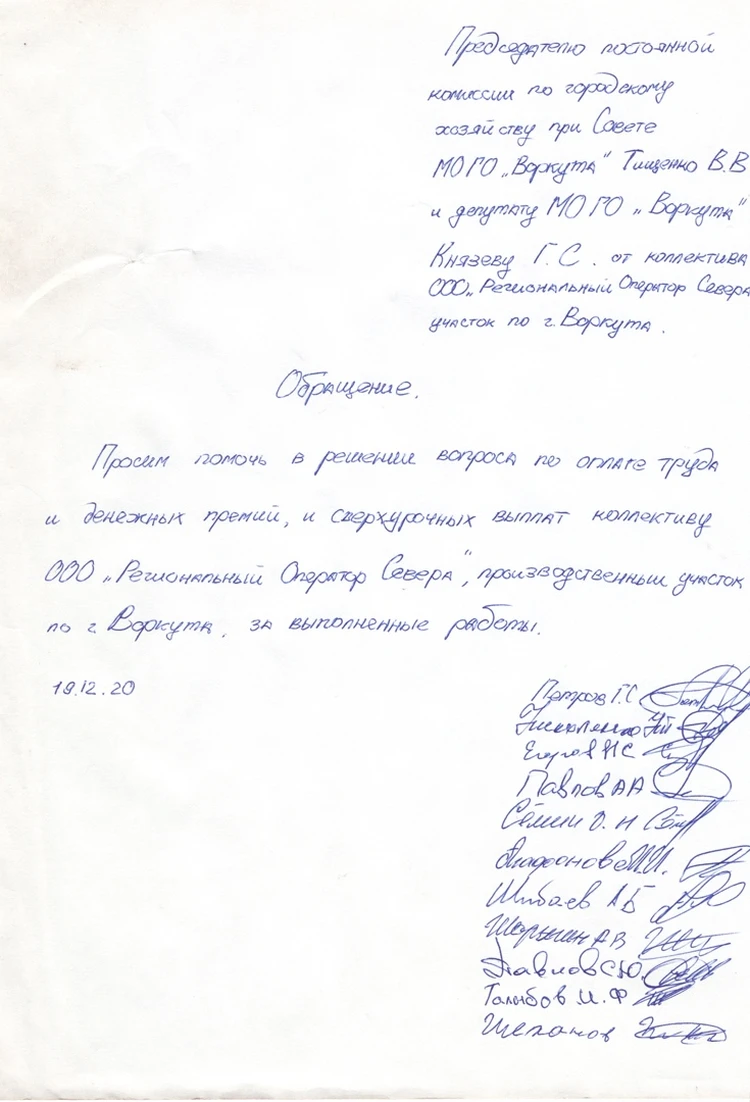 Председателю постоянной
комиссии по городскому
хозяйству при Совете
МОГО „Воркута" Тищенко В.В
и депутату МО ГО „Воркута"
Князеву Г.С. от коллектива
ООО„Региональный Оператор Севера
участок по г.Воркута.
Обращение.
Просим помочь в решении вопроса по оплате труда
и денежных премий, и сверхурочных выплат коллективу
ООО „Региональный Оператор Севера", производственным участок
по г. Воркута, за выполненные работы.
19.12.20
Петров Г.С
Егоров Н С
Павлов А А
Сёмин О. Н
М.И.
Шибаев А Б
Шаршин А В
Павлов С.Ю.
Талыбов И.Ф
Щепанов